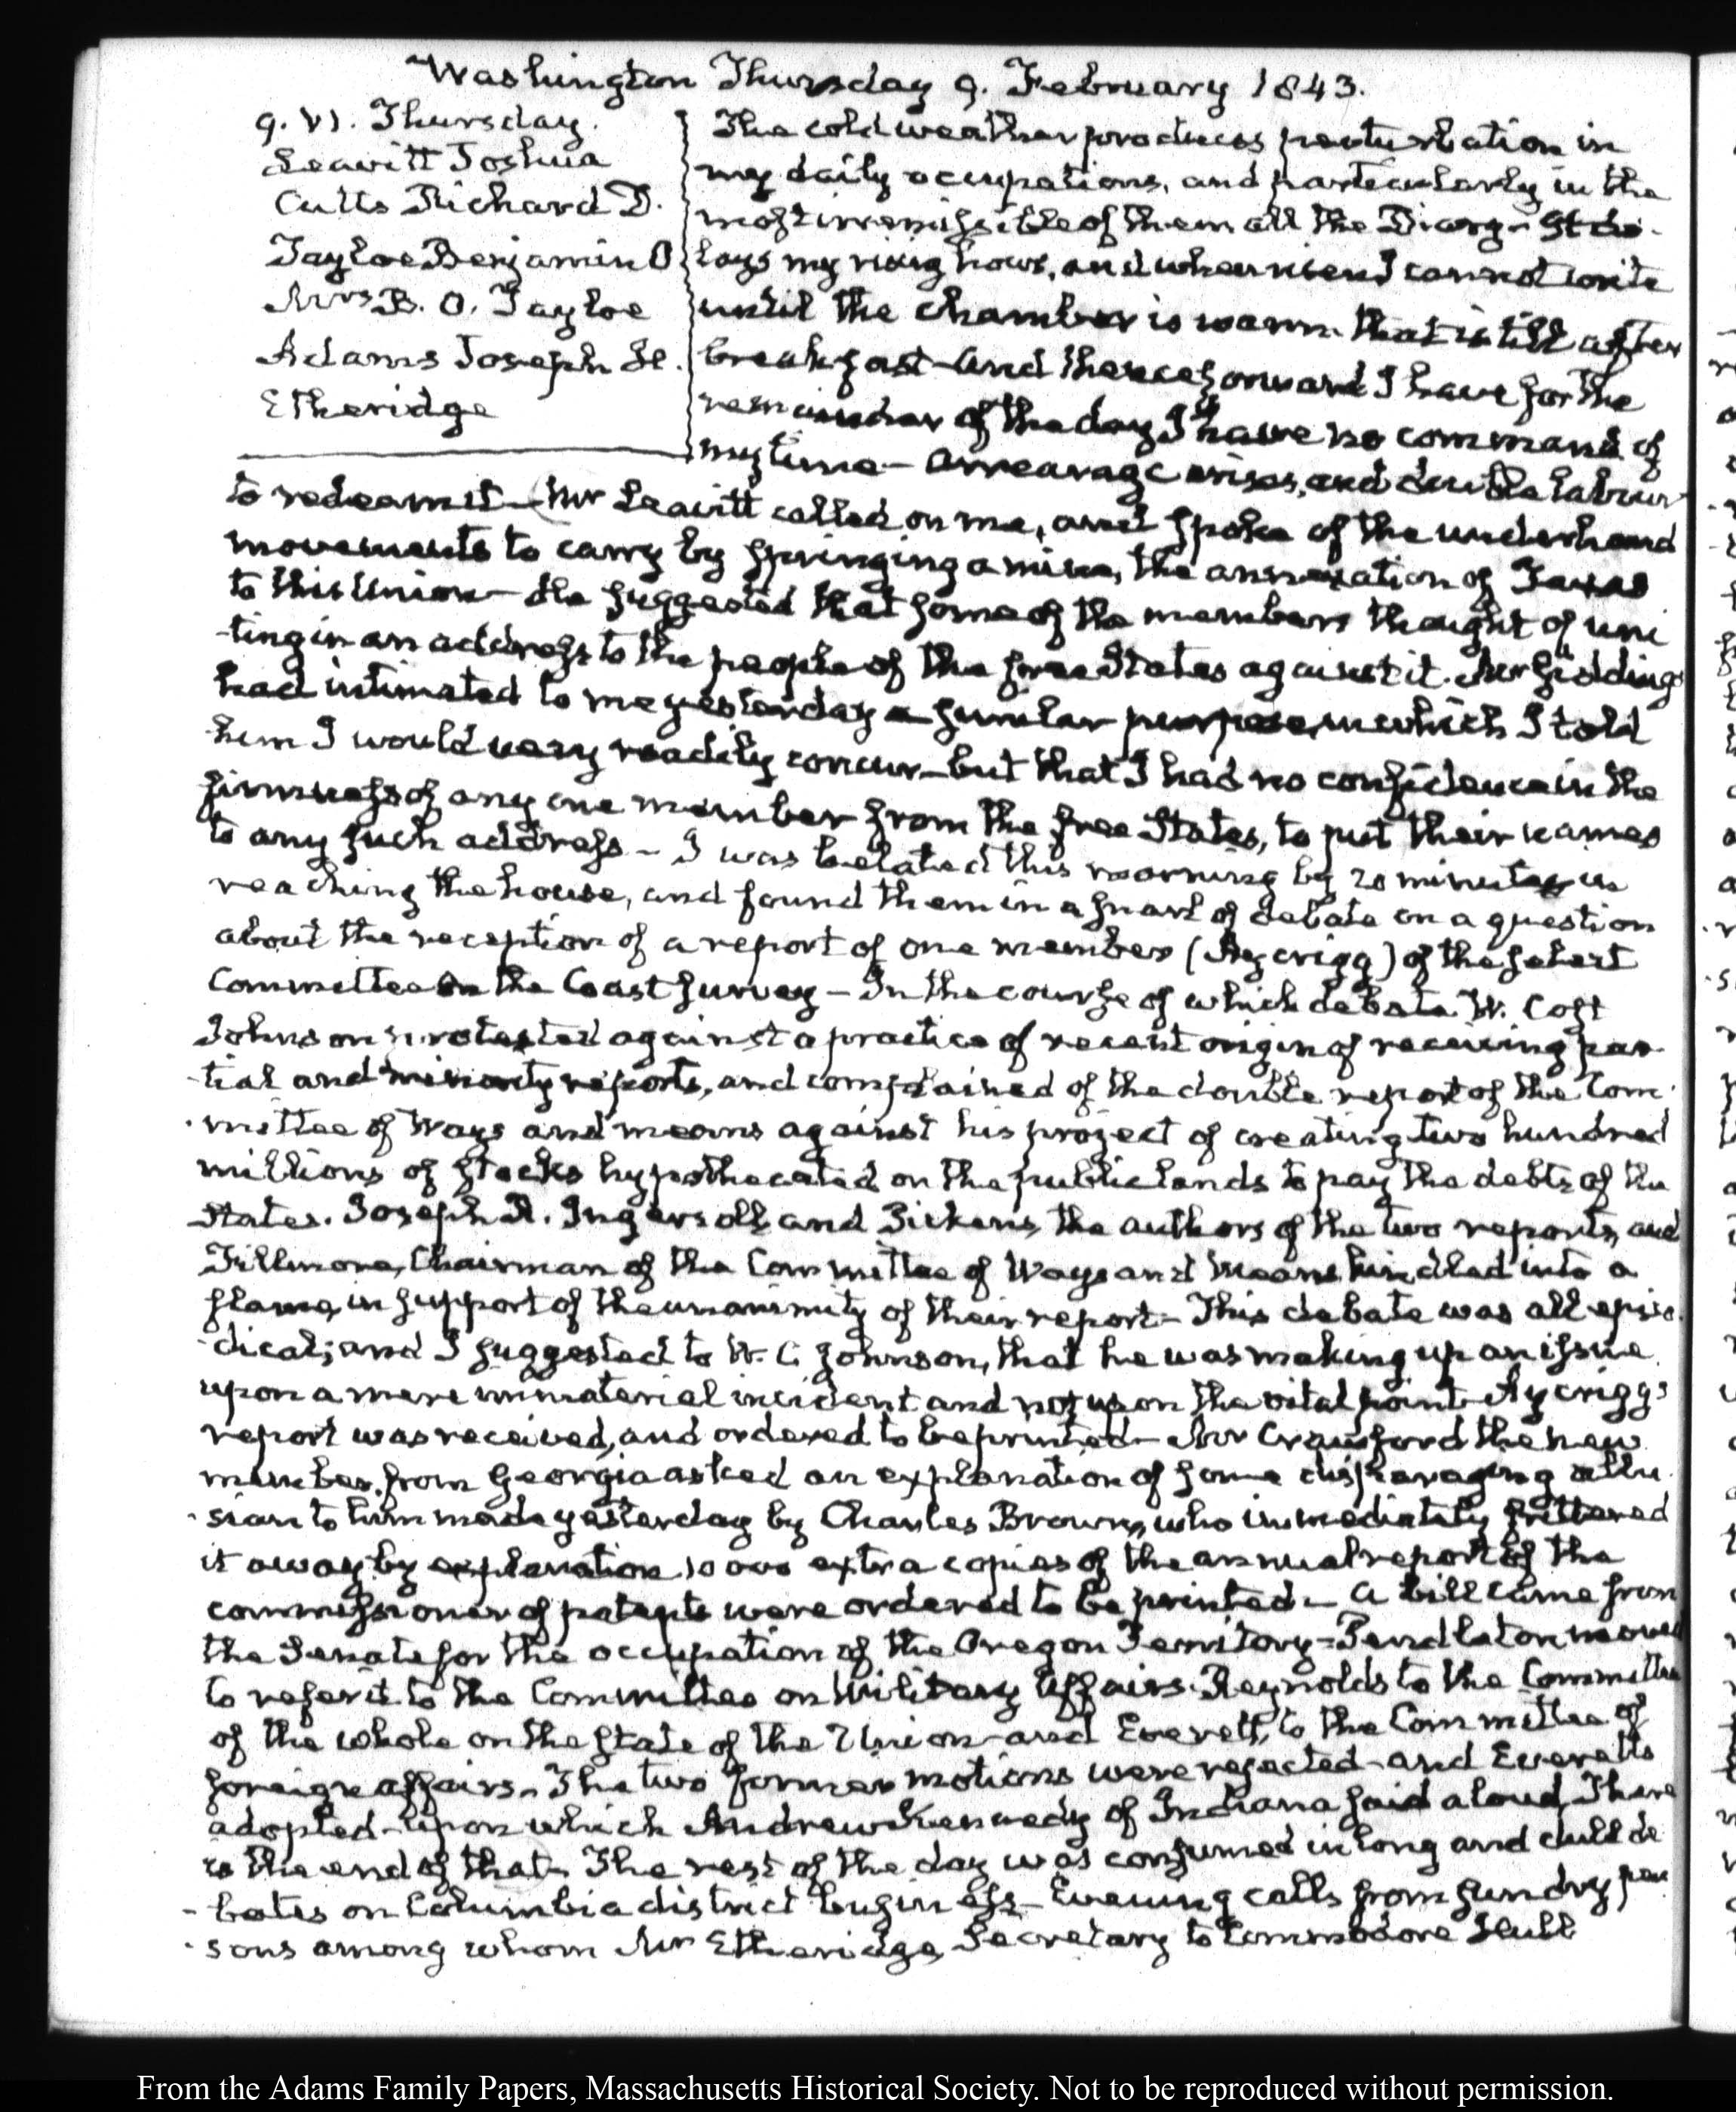 Washington Thursday 9. February 1843.
9. VI. Thursday.
Leavitt Joshua
Cutts Richard D.
Tayloe Benjamin O
Mrs B. O. Tayloe
Adams Joseph H.
Etheridge
The cold weather produces perturbation in
my daily occupations, and particularly in the
most irremissible of them all the Diary - It de-
lays my rising hour, and when risen I cannot write
until the chamber is warm. that is till after
breakfast - And thenceforward I have for the
remainder of the day I have no command of
my time - Arrearage arises, and double labour
to redeem it - Mr Leavitt called on me, and spoke of the underhand
movements to carry by springing a mine, the annexation of Texas
to this Union - He suggested that some of the members thought of uni
-ting in an address to the people of the free States against it. Mr Giddings
had intimated to me yesterday a similar purpose, in which I told
him I would very readily concur - but that I had no confidence in the
firmness of any one member from the free States, to put their names
to any such address - I was belated this morning by 20 minutes in
reaching the house, and found them in a snarl of debate on a question
about the reception of a report of one member (Aycrigg) of the select
Committee on the Coast Survey - In the course of which debate W. Cost
Johnson protested against a practice of recent origin of receiving par-
-tial and minority reports, and complained of the double report of the Com-
-mittee of Ways and means against his project of creating two hundred
millions of stocks hypothecated on the public lands to pay the debts of the
States. Joseph R. Ingersoll and Pickens, the authors of the two reports, and
Fillmore, Chairman of the Committee of Ways and Means kindled into a
flame, in support of the unanimity of their report - This debate was all episo-
-dical; and I suggested to W. C. Johnson, that he was making up an issue
upon a mere immaterial incident and not upon the vital point - Aycrigg's
report was received, and ordered to be printed - Mr Crawford the new
member from Georgia asked an explanation of some disparaging allu-
-sion to him made yesterday by Charles Brown, who immediately frittered
it away by explanation 10000 extra copies of the annual report of the
commissioner of patents were ordered to be printed - A bill came from
the Senate for the occupation of the Oregon Territory - Pendleton moved
to refer it to the Committee on Military Affairs. Reynolds to the Committee
of the whole on the state of the Union and Everett, to the Committee of
foreign affairs - The two former motions were rejected - and Everett's
adopted - Upon which Andrew Kennedy of Indiana said aloud, There
is the end of that - The rest of the day was consumed in long and dull de
-bates on Columbia district business - Evening calls from sundry per
-sons among whom Mr Etheridge, Secretary to Commodore Hull
From the Adams Family Papers, Massachusetts Historical Society. Not to be reproduced without permission.